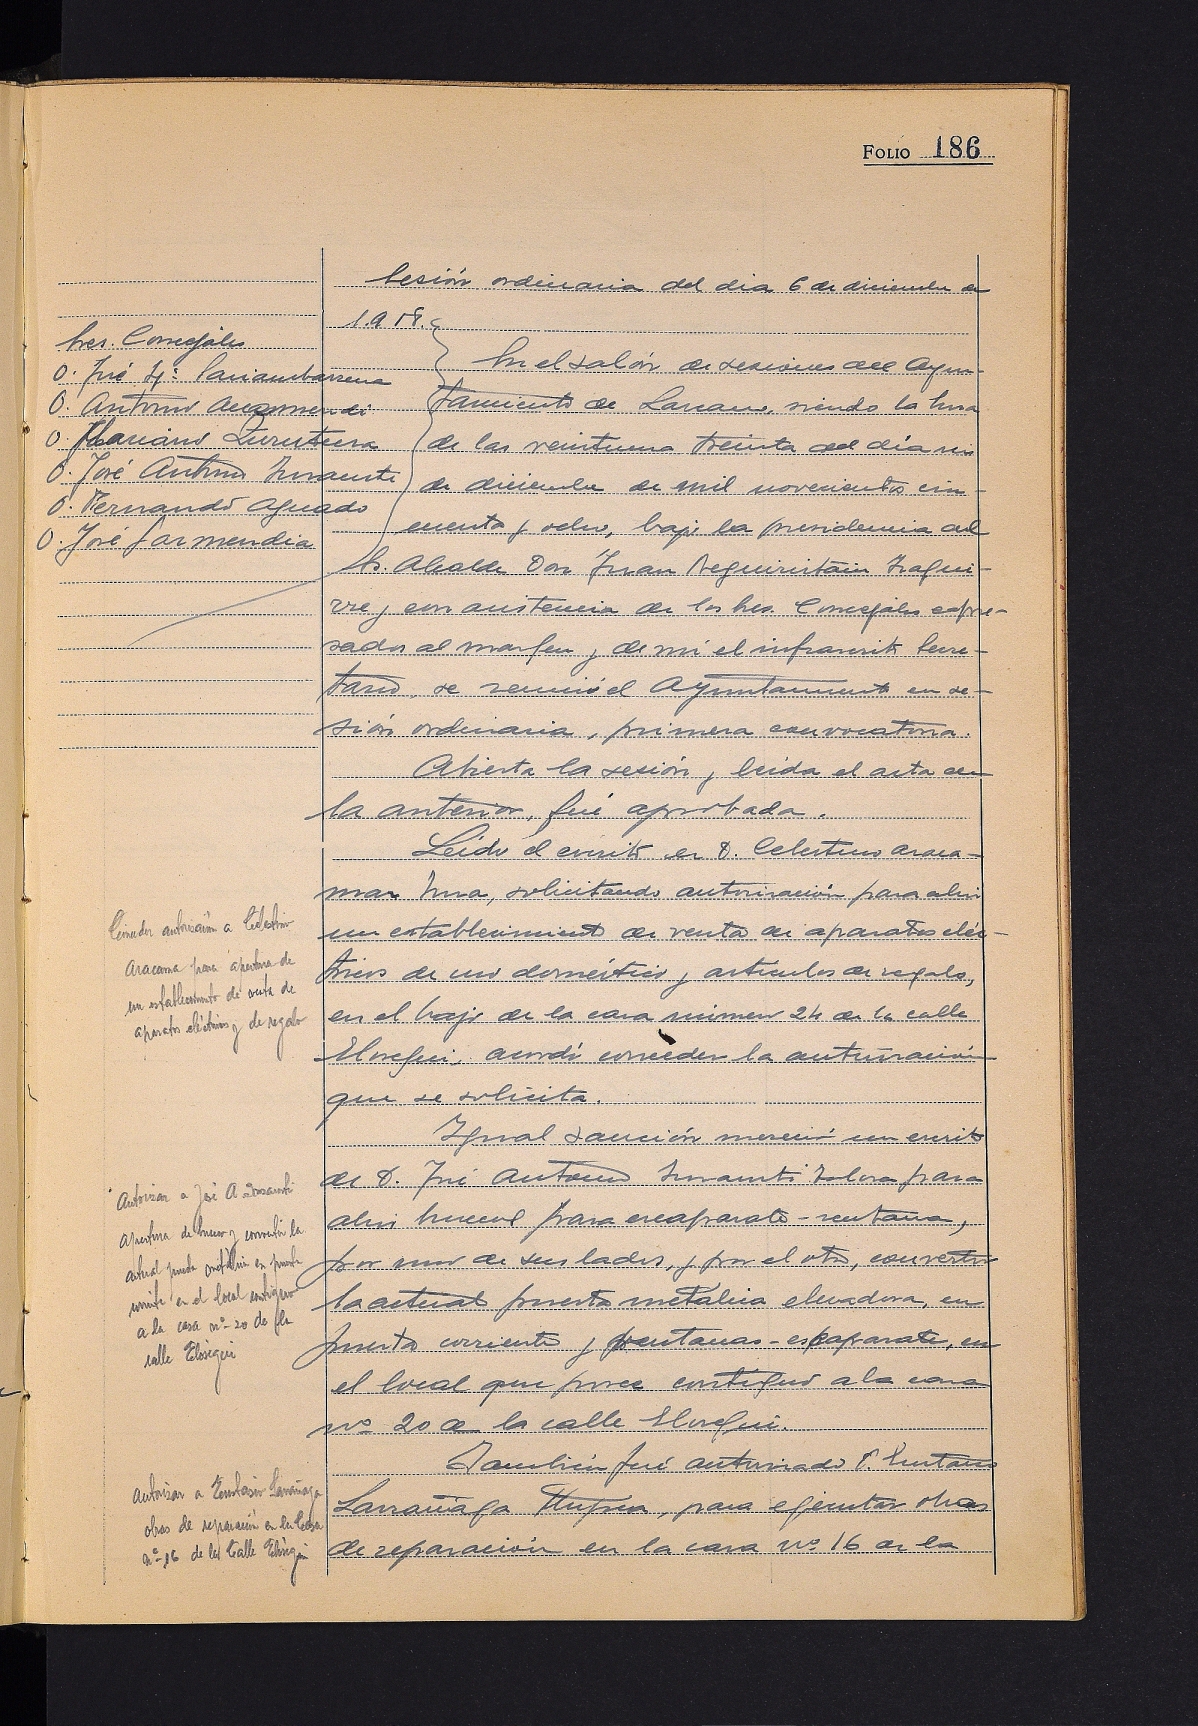 FOLIO 186
Sesión ordinaria del día 6 de diciembre de
1.958.
Sres. Concejales
D. José Mª Sarriambarrena
D. Antonio Auzmendi
D. Mariano Zurutuza
D. José Antonio Insausti
D. Fernando Aguado
D. José Garmendia
En el salón de sesiones del Ayun-
tamiento de Lazcano, siendo la hora
de las veintiuna treinta del día seis
de diciembre de mil novecientos cin-
cuenta y ocho, bajo la presidencia del
Sr. Alcalde Don Juan Iragui-
rre y con asistencia de los Sres. Concejales expre-
sados al margen y de mí el infrascrito Secre-
tario, se reunió el Ayuntamiento en se-
sión ordinaria, primera convocatoria.
Abierta la sesión y leida el acta de
la anterior, fué aprobada.
Conceder autorización a Celestino
Aracama para apertura de
un establecimiento de venta de
aparatos eléctricos y de regalo
Leido el escrito de D. Celestino Araca-
ma, solicitando autorización para abrir
un establecimiento de venta de aparatos eléc-
tricos de uso doméstico y artículos de regalo,
en el bajo de la casa número 24 de la calle
Elosegui, acordó conceder la autorización
que se solicita.
Autorizar a José A. Insausti
apertura de hueco y convertir la
actual puerta metálica en puerta
corriente en el local contiguo
a la casa nº 20 de la
calle Elósegui
Igual sanción mereció un escrito
de D. José Antonio Insausti para
abrir hueco para escaparate-ventana,
por uno de sus lados, y por el otro, convertir
la actual puerta metálica elevadora, en
puerta corriente y ventanas-escaparate, en
el local que posee contiguo a la casa
nº 20 de la calle Elosegui.
Autorizar a Eustasio Larrañaga
obras de reparación en la Casa
nº 16 de la Calle Elósegui
También fué autorizado D. Eustasio
Larrañaga, para ejecutar obras
de reparación en la casa nº 16 de la